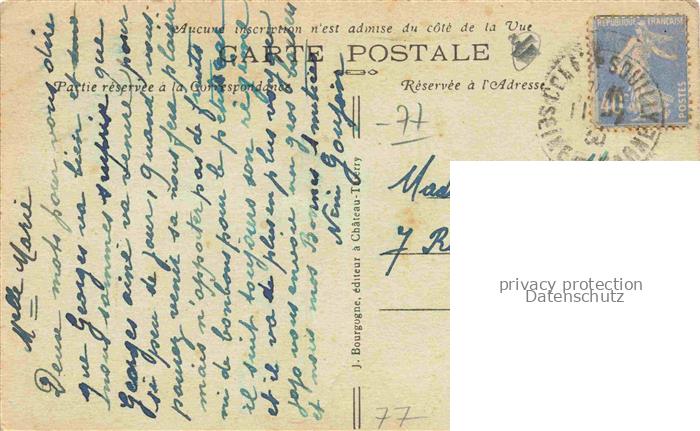 Aucune inscription n'est admise du côté de la Vue
CARTE POSTALE
Partie réservée a la Correspondance
Réservée à l'Adresse
Melle Marie
Deux mots pour vous dire
que Georges va bien et
nous sommes surpris que
Georges aîné va venir pour
si peu de jour, quand vous
pourrez venir sa nous fera plaisir
mais n'apporter pas de fruits
ni de bonbons pour le petit car
il suit toujours son régime
et il va de plus en plus voyez
vous envoie un gros baiser
et nous nos Bonnes Amitiés
Nini Goujon
J. Bourgogne, éditeur à Château-Thierry
-77
Mad
7 R
77
REPUBLIQUE FRANÇAISE
40
POSTES
SOUILLY
SEINE
MARNE
privacy protection
Datenschutz